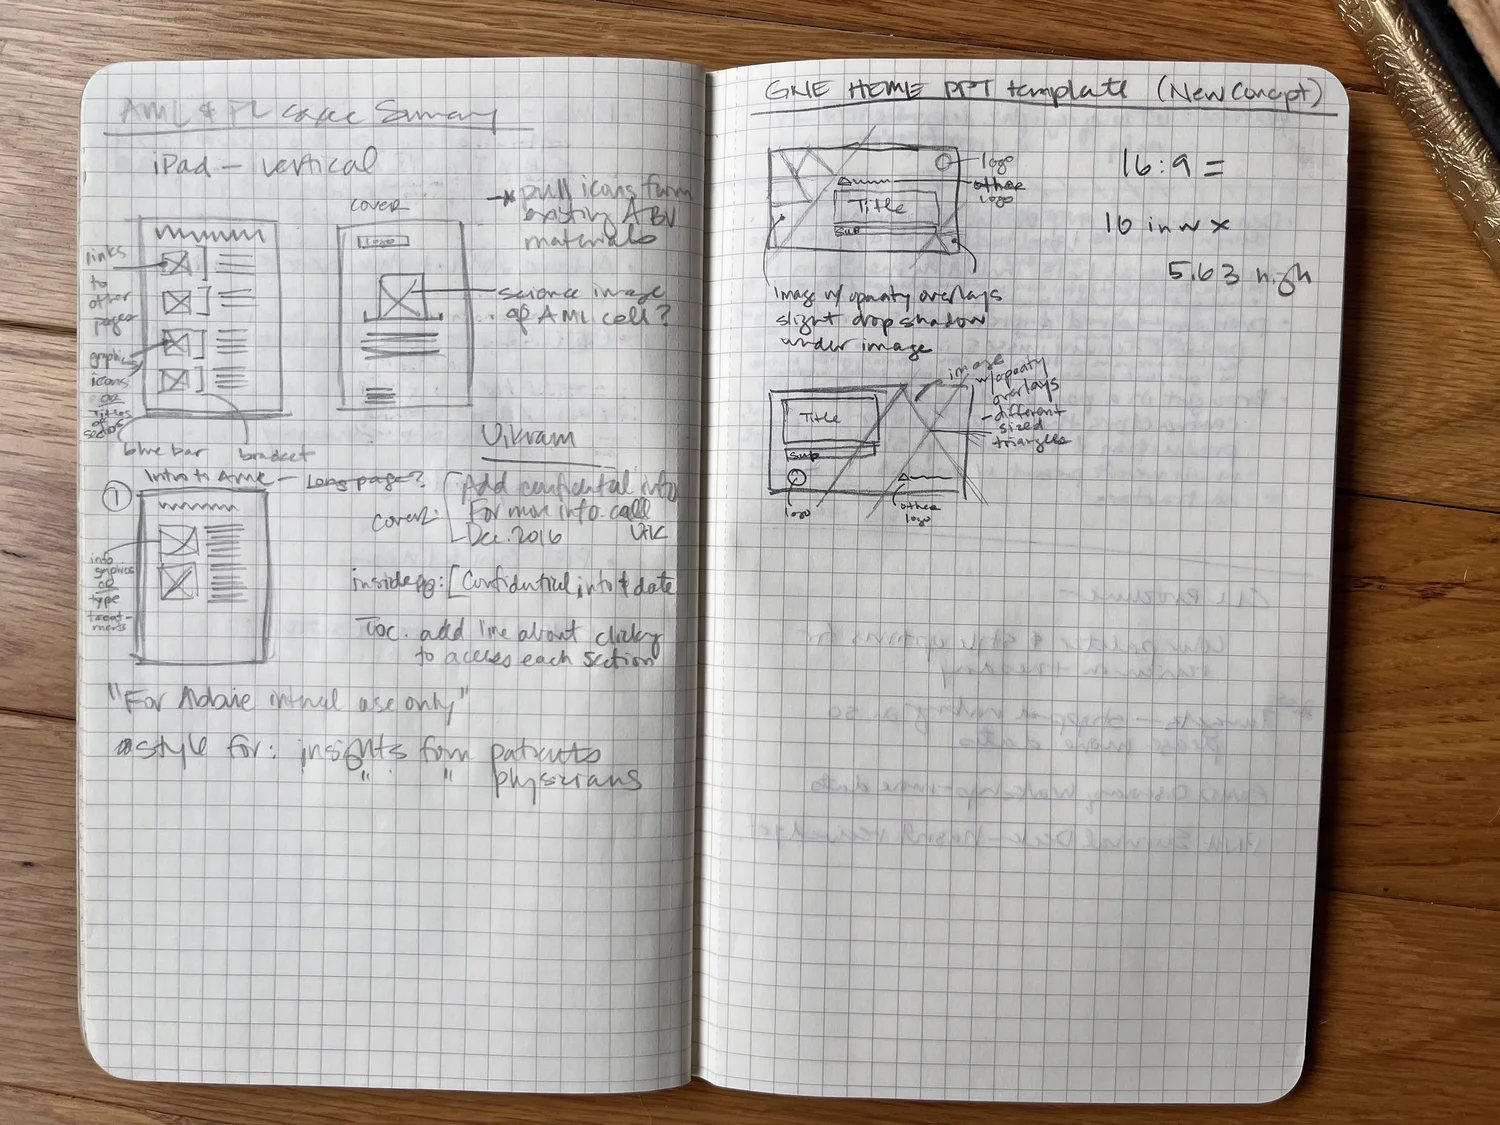 AML & PL case Summary
iPad – vertical
links
to
other
pages
graphics
icons
OR
Titles
of
sections
blue bar
bracket
cover
Logo
→* pull icons from
existing ABV
materials
science image
of AML cell?
① Intro to AML – Long page?
info
graphics
OR
type
treat-
ments
Vikram
cover:
Add confidential info
For more info. call
Dec. 2016
inside pg: [Confidential info & date
TOC. add line about clicking
to access each section
"For Abbvie internal use only"
style for: insights from patients
" " physicians
GNE HOME PPT template (New Concept)
logo
other
logo
Title
Sub
Image w/ opacity overlays
slight drop shadow
under image
16:9 =
10 in w x
5.63 high
image
w/ opacity
overlays
- different
sized
triangles
Title
Sub
logo
other
logo